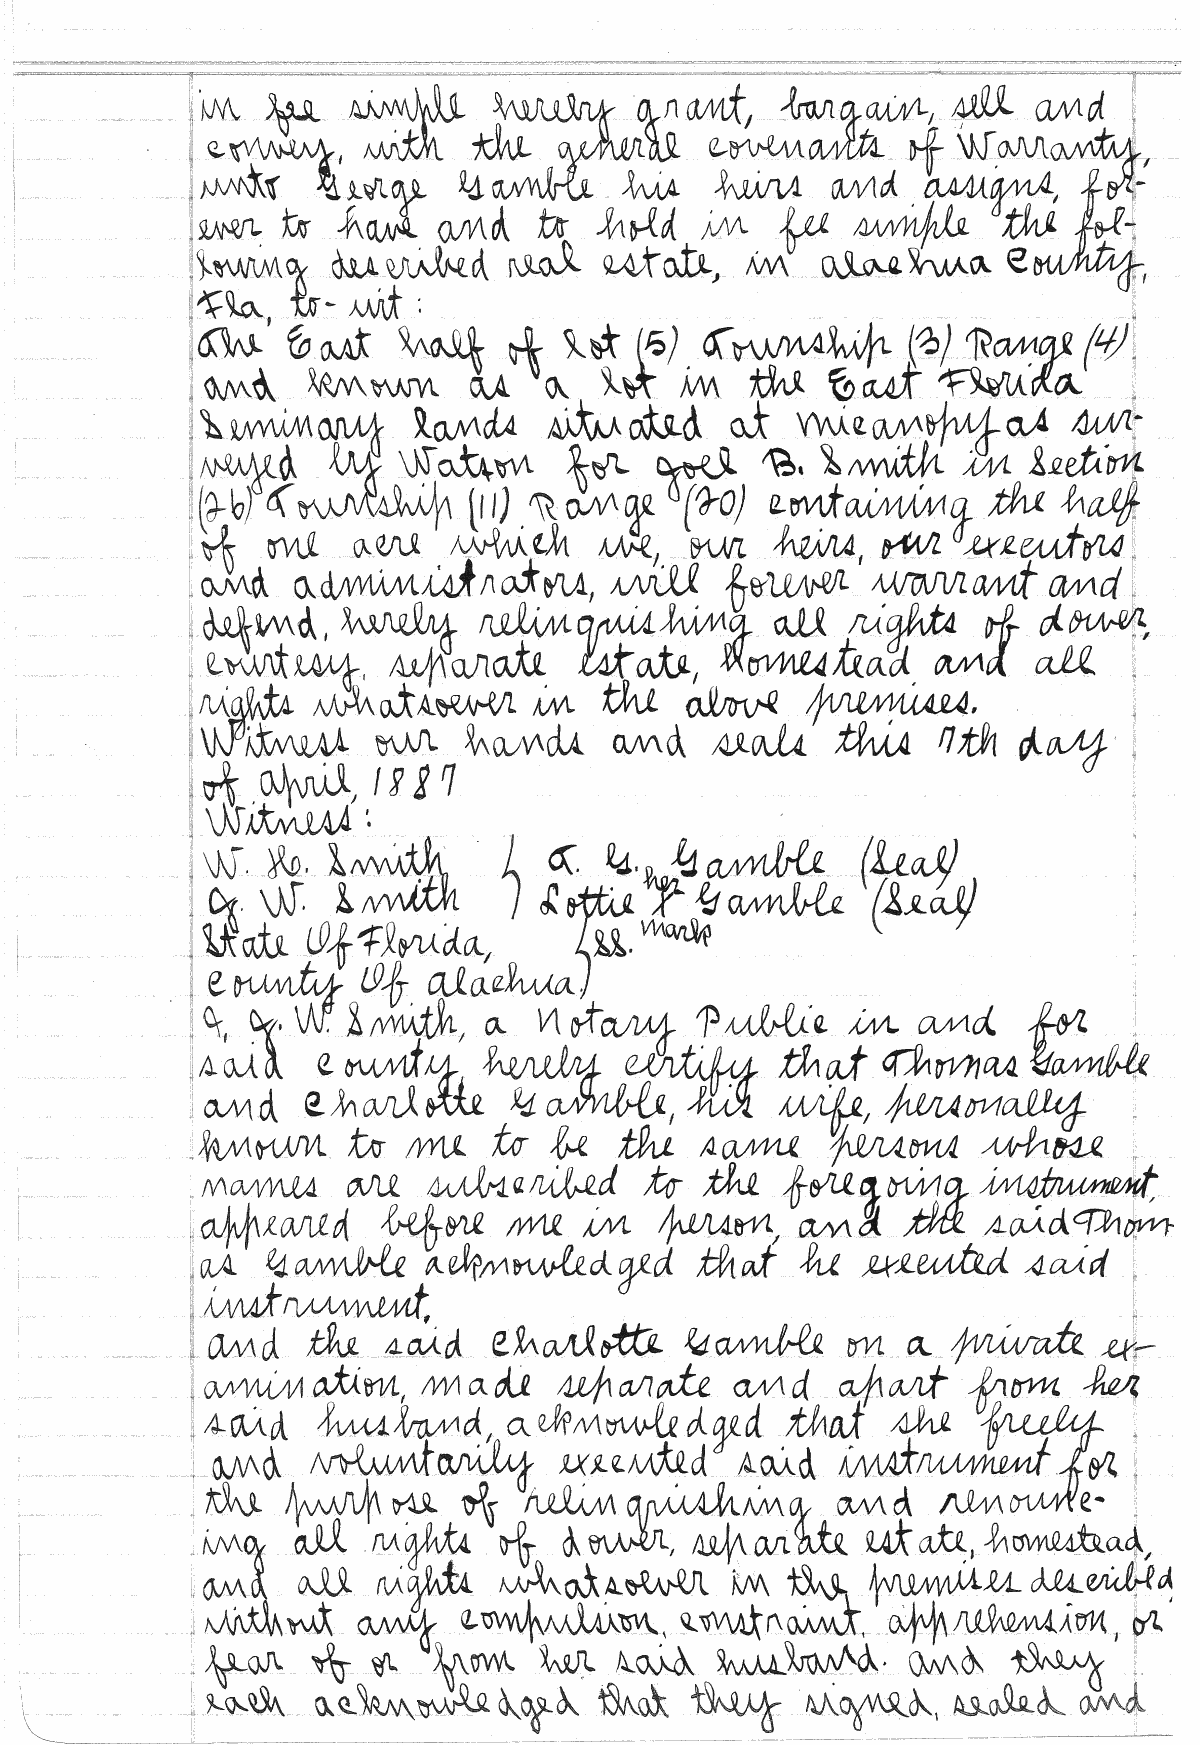 in fee simple hereby grant, bargain, sell and
convey, with the general covenants of Warranty,
unto George Gamble his heirs and assigns, for-
ever to have and to hold in fee simple the fol-
lowing described real estate, in Alachua County,
Fla, to-wit:
The East half of lot (5) Township (3) Range (4)
and known as a lot in the East Florida
Seminary lands situated at Micanopy as sur-
veyed by Watson for Joel B. Smith in Section
(26) Township (11) Range (20) containing the half
of one acre which we, our heirs, our executors
and administrators, will forever warrant and
defend, hereby relinquishing all rights of dower,
courtesy, separate estate, homestead and all
rights whatsoever in the above premises.
Witness our hands and seals this 7th day
of April, 1887
Witness:
W. H. Smith } T. G. Gamble (Seal)
J. W. Smith } Lottie her X mark Gamble (Seal)
State Of Florida, } SS.
County Of Alachua. }
I, J. W. Smith, a Notary Public in and for
said County, hereby certify that Thomas Gamble
and Charlotte Gamble, his wife, personally
known to me to be the same persons whose
names are subscribed to the foregoing instrument,
appeared before me in person, and the said Thom-
as Gamble acknowledged that he executed said
instrument.
And the said Charlotte Gamble on a private ex-
amination, made separate and apart from her
said husband, acknowledged that she freely
and voluntarily executed said instrument for
the purpose of relinquishing and renounc-
ing all rights of dower, separate estate, homestead,
and all rights whatsoever in the premises described,
without any compulsion, constraint, apprehension, or
fear of or from her said husband. And they
each acknowledged that they signed, sealed and